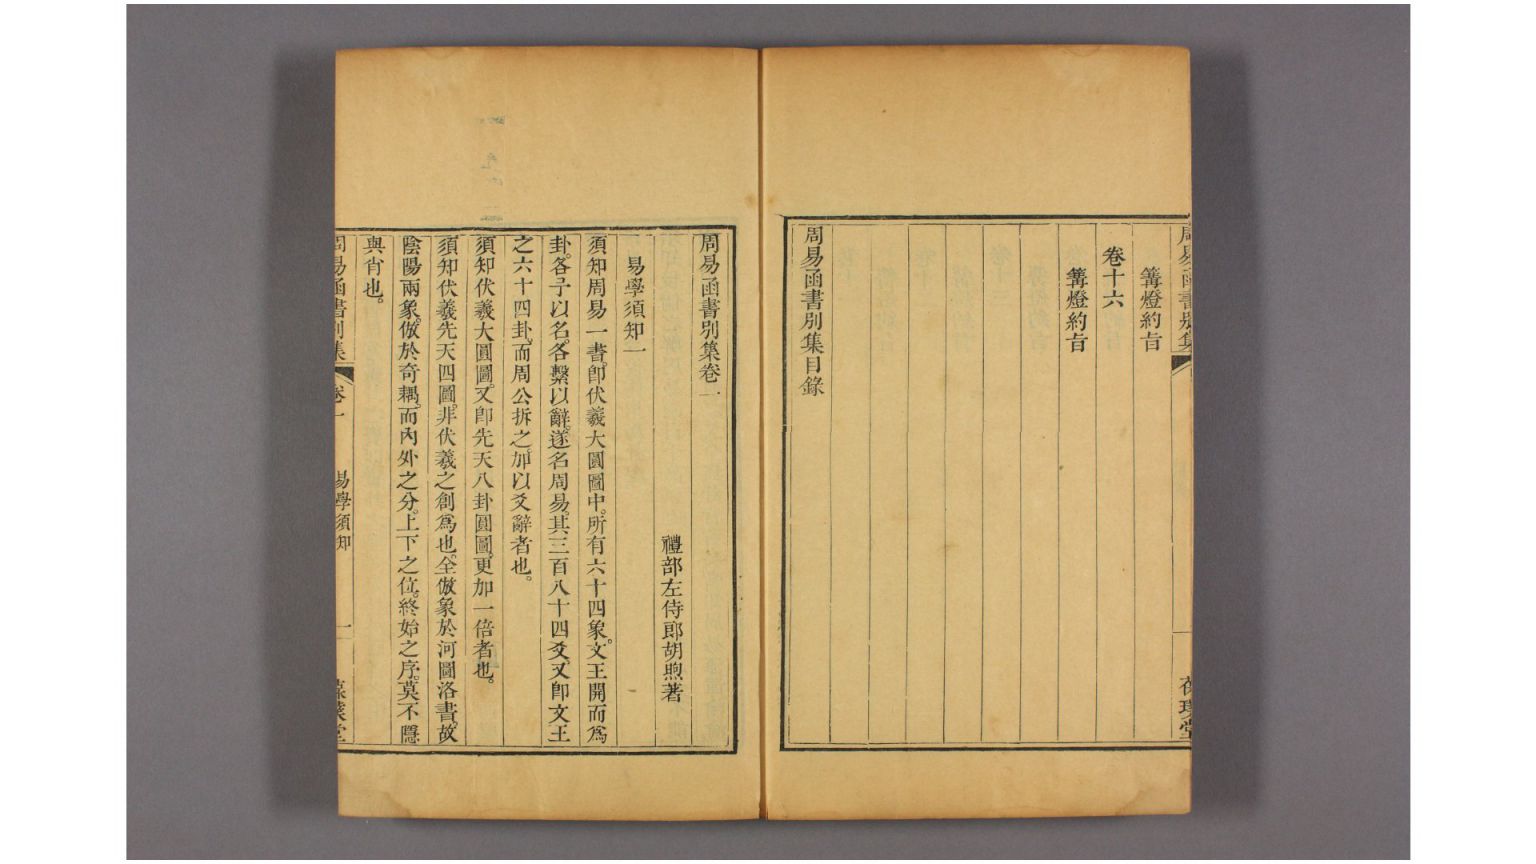 周易函書別集
篝燈約旨
卷十六
篝燈約旨
周易函書別集目錄
周易函書別集卷一
禮部左侍郎胡煦著
易學須知一
須知周易一書。卽伏羲大圓圖中。所有六十四象。文王開而爲
卦。各予以名。各繫以辭。遂名周易。其三百八十四爻。又卽文王
之六十四卦。而周公拆之。加以爻辭者也。
須知伏羲大圓圖。又卽先天八卦圓圖。更加一倍者也。
須知伏羲先天四圖。非伏羲之創爲也。全倣象於河圖洛書。故
陰陽兩象。倣於奇耦。而內外之分。上下之位。終始之序。莫不隱
與肖也。
周易函書別集 卷一 易學須知 一 葆璞堂